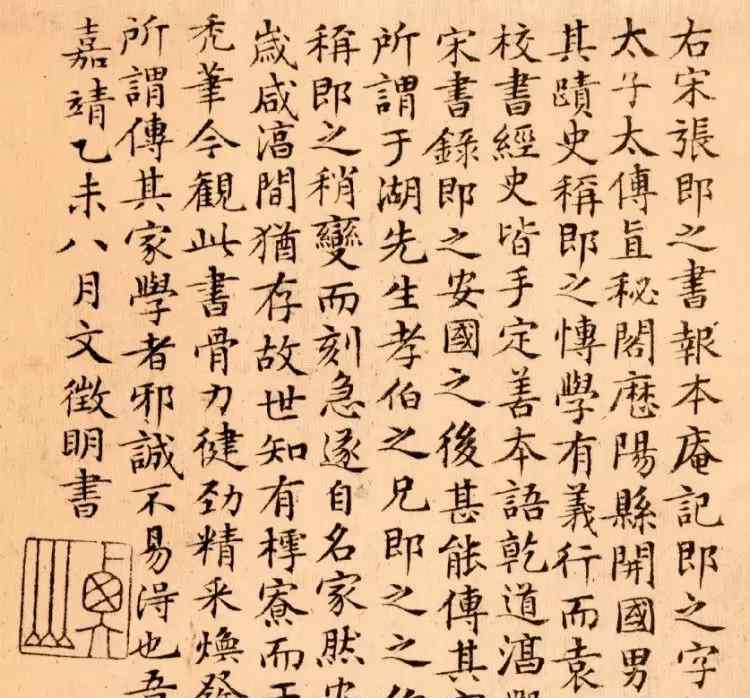 右宋張即之書報本庵記即之字
太子太傅直秘閣歷陽縣開國男
其蹟史稱即之慱學有義行而袁
校書經史皆手定善本語乾道淳熙
宋書錄即之安國之後甚能傳其
所謂于湖先生孝伯之兄即之之
稱即之稍變而刻急遂自名家然安
嵗咸淳間猶存故世知有樗寮而于
禿筆今觀此書骨力健勁精采煥發
所謂傳其家學者邪誠不易得也吾
嘉靖乙未八月文徵明書